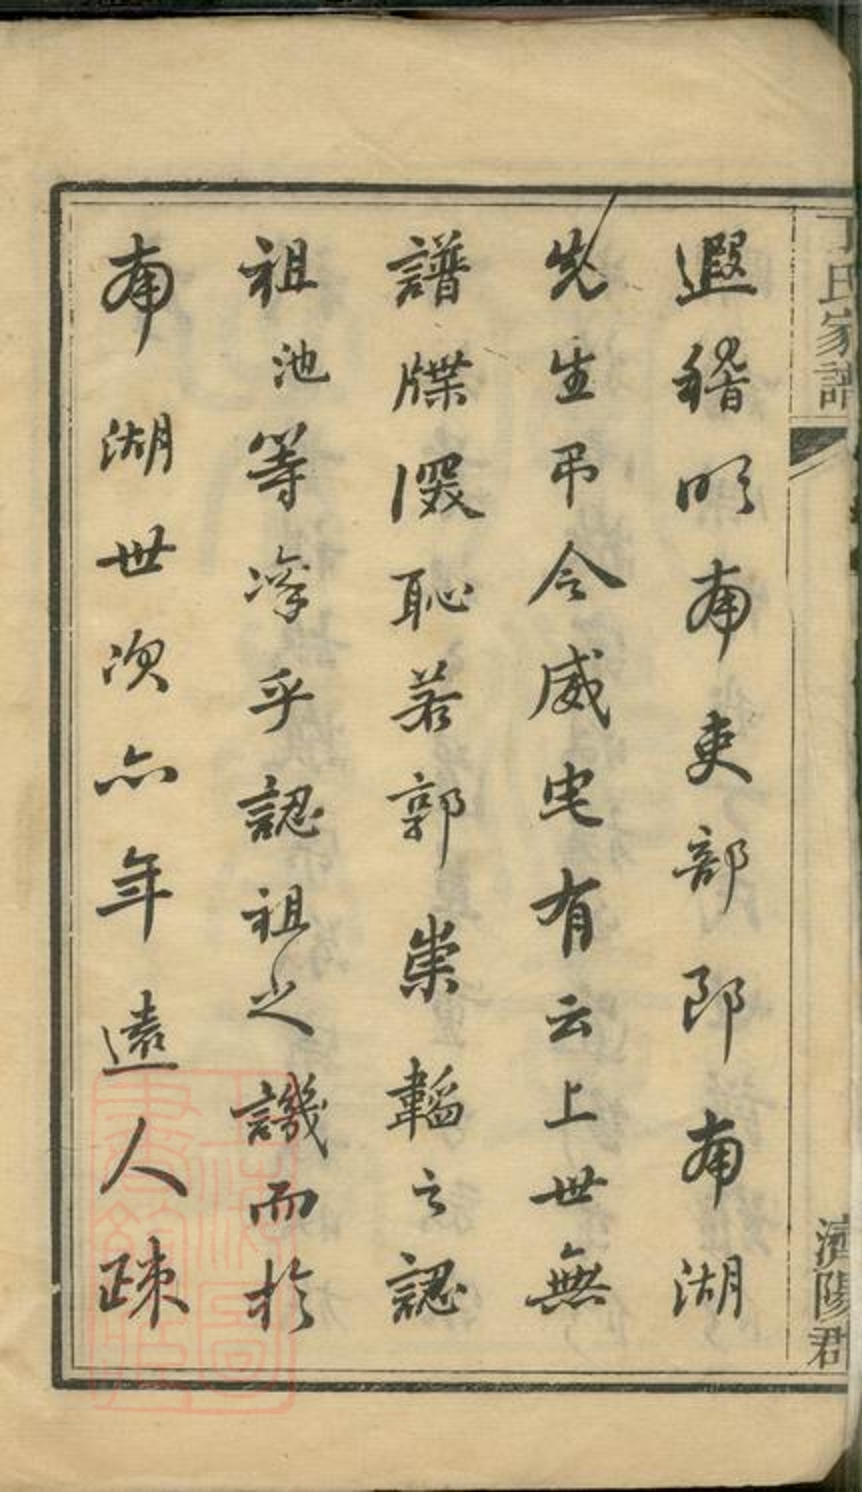 丁氏家譜
濟陽郡
遐稽明南吏部郎南湖
先生弔令威宅有云上世無
譜牒深恥若郭崇韜之認
祖池等凜乎認祖之譏而於
南湖世次亦年遠人疎